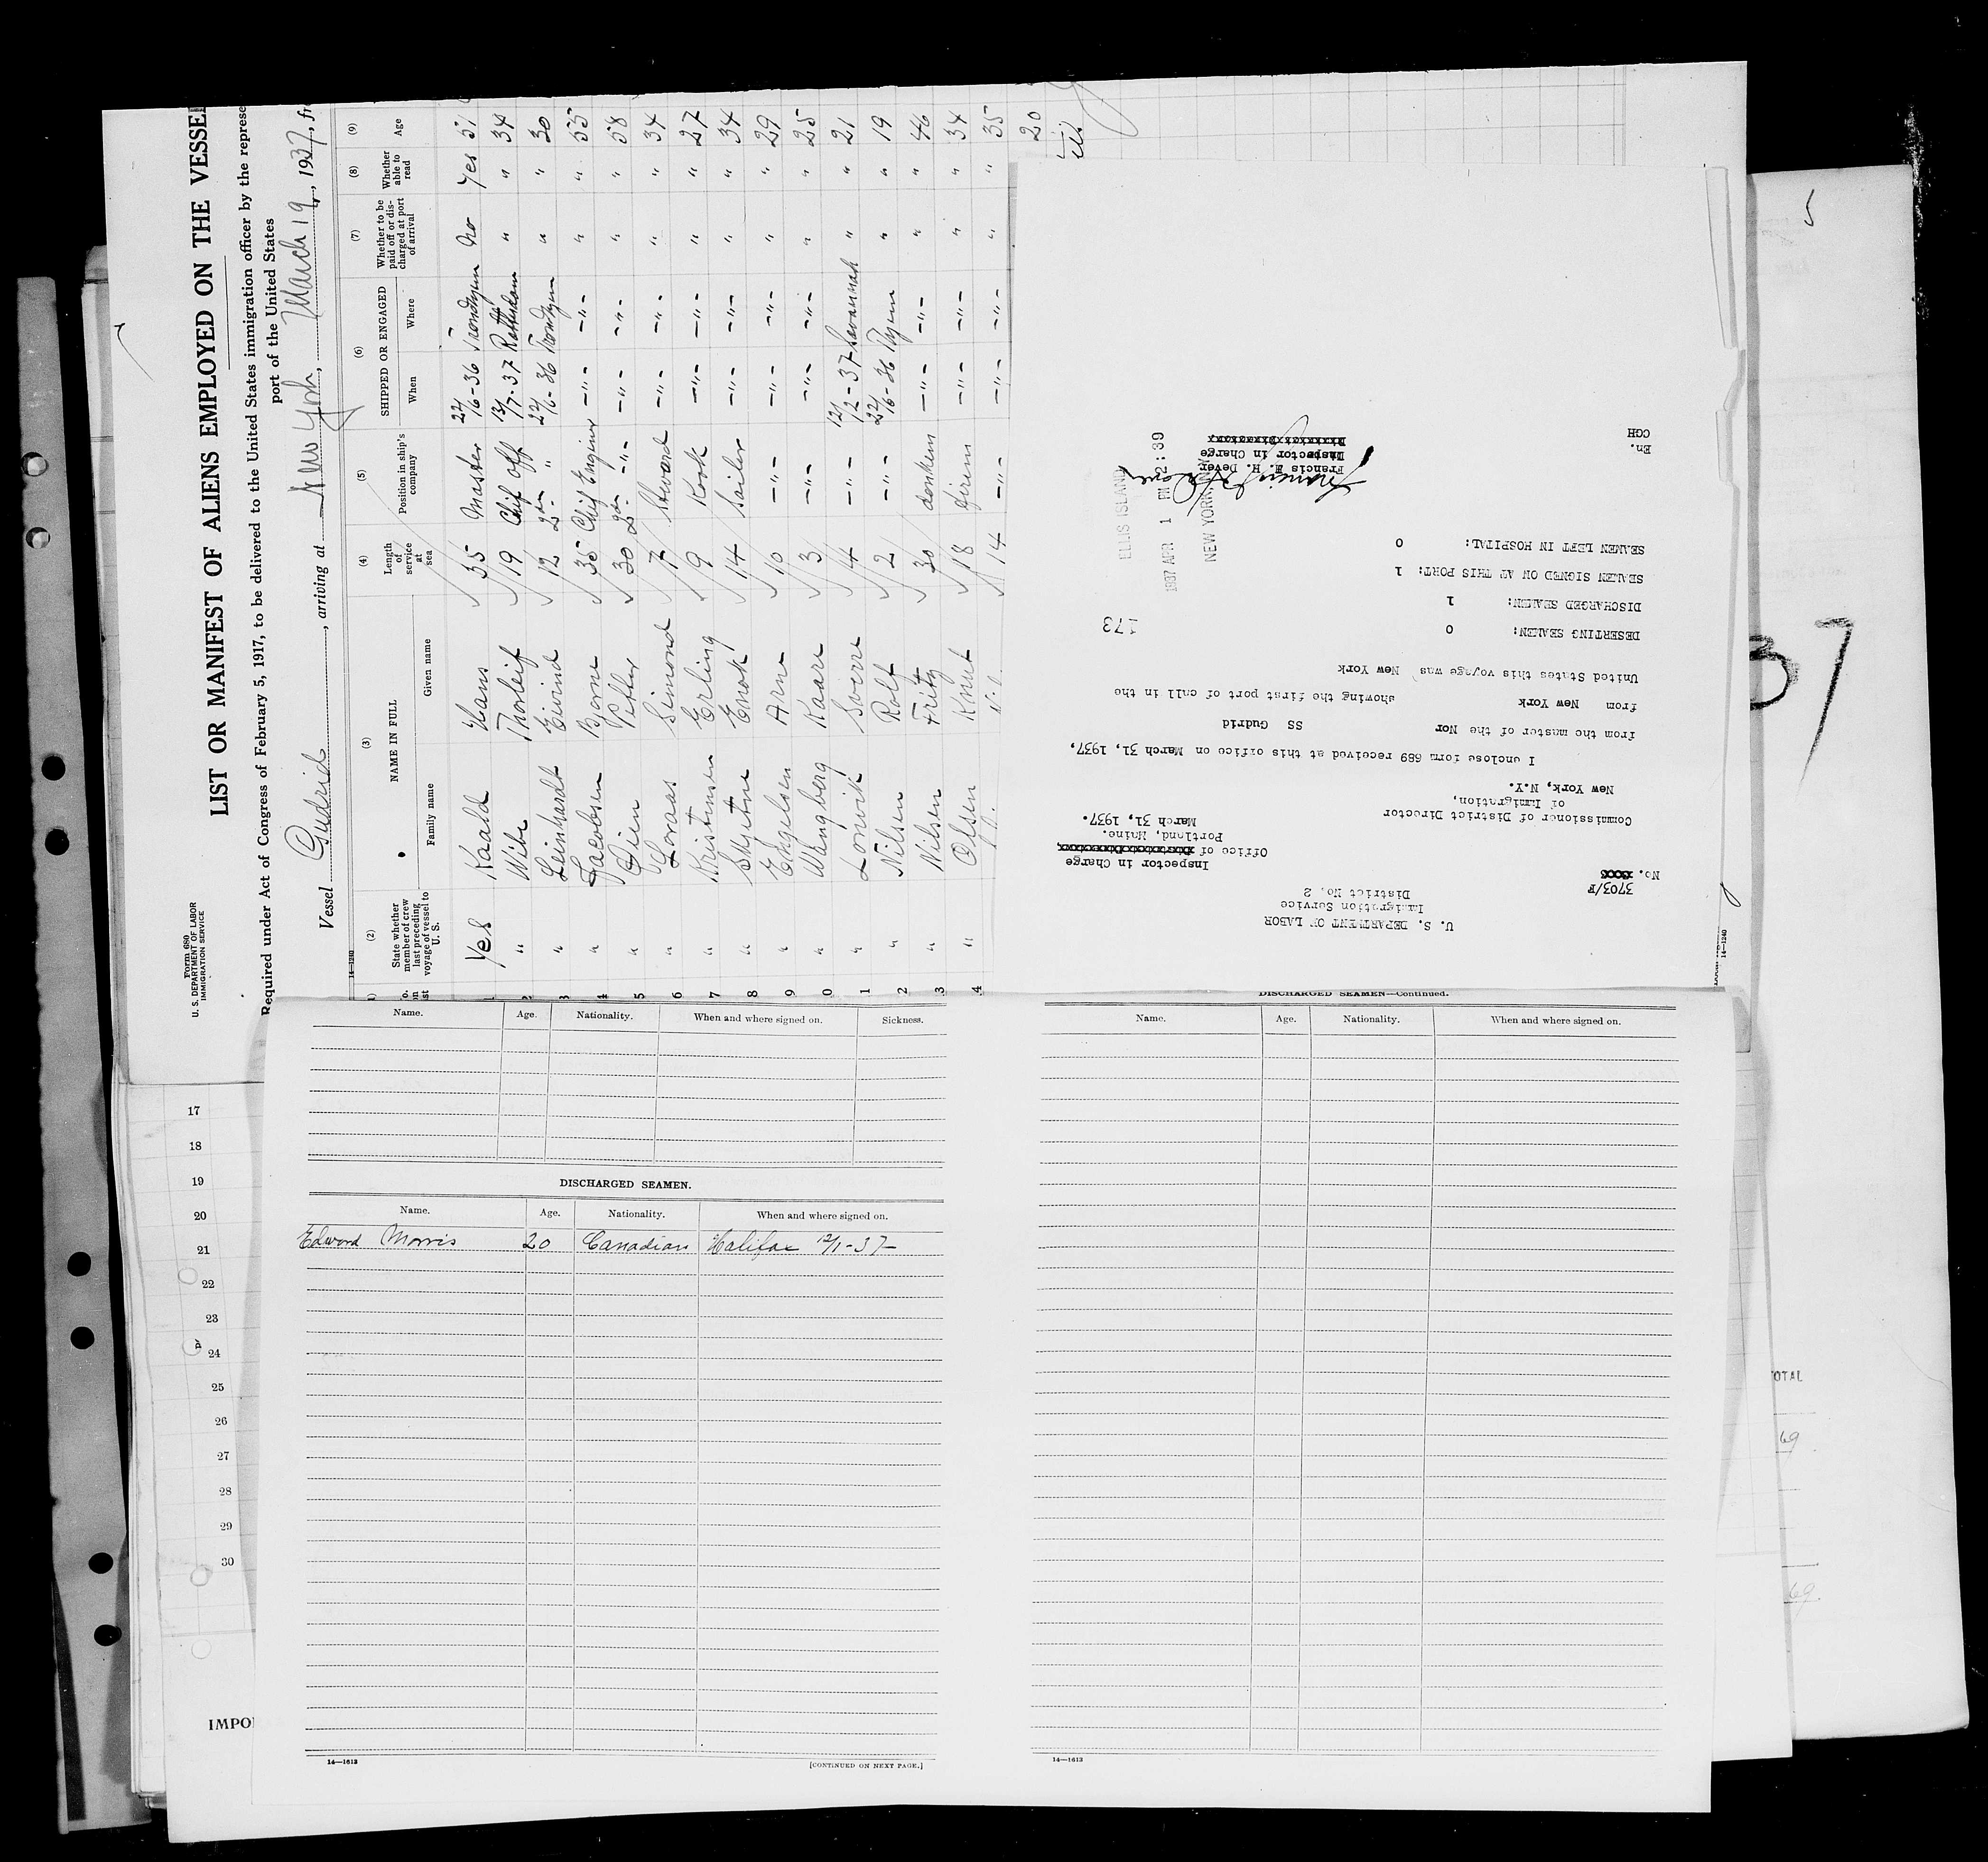 Form 680
U. S. DEPARTMENT OF LABOR
IMMIGRATION SERVICE
LIST OR MANIFEST OF ALIENS EMPLOYED ON THE VESSEL
Required under Act of Congress of February 5, 1917, to be delivered to the United States immigration officer by the represe
port of the United States
Vessel Gudrid, arriving at New York, March 19, 1937, fr
14—1240
(2) (3) (4) (5) (6) (7) (8) (9)
State whether member of crew last preceding voyage of vessel to U. S. NAME IN FULL Length of service at sea Position in ship's company SHIPPED OR ENGAGED Whether to be paid off or discharged at port of arrival Whether able to read Age
Family name Given name When Where
1 Yes Kaald Hans 35 Master 22/6-36 Trondjem No Yes 51
2 " Wibe Thorleif 19 Chif Off 13/7-37 Rotterdam " " 34
3 " Leinhardt Eivind 12 2dn " 22/6-36 Trondjem " " 30
4 " Jacobsen Bjarne 35 Chif Enginer -"- -"- " " 55
5 " Oien Petter 30 2dn -"- -"- -"- " " 58
6 " Loraas Simond 7 Steward -"- -"- " " 34
7 " Kristensen Erling 9 Kock -"- -"- " " 27
8 " Skjetne Enok 14 Sailor -"- -"- " " 34
9 " Engelsen Arne 10 -"- -"- -"- " " 29
0 " Wangberg Kaare 3 -"- -"- -"- " " 25
1 " Lorvik Sverre 4 -"- 12/2-37 Savannah " " 21
2 " Nilsen Rolf 2 -"- 22/6-36 Tjem " " 19
3 " Nilsen Fritz 30 donkem -"- -"- " " 46
4 " Olsen Knut 18 firem -"- -"- " " 34
14 -"- -"- -"- " " 35
20
U. S. DEPARTMENT OF LABOR
Immigration Service
District No. 2
3703/F
No.
Inspector in Charge
Office of
Portland, Maine.
March 31, 1937.
Commissioner of District Director
of Immigration,
New York, N.Y.
I enclose form 689 received at this office on March 31, 1937,
from the master of the Nor SS Gudrid
from New York showing the first port of call in the
United States this voyage was New York
DESERTING SEAMEN: 0
173
DISCHARGED SEAMEN: 1
SEAMEN SIGNED ON AT THIS PORT: 1
SEAMEN LEFT IN HOSPITAL: 0
ELLIS ISLAND
1937 APR 1 PM 2:39
NEW YORK, N.Y.
Francis H. Dever
Inspector in Charge
En.
CGH
14—1240
17
18
19
20
21
22
23
24
25
26
27
28
29
30
IMPO
Name. Age. Nationality. When and where signed on. Sickness.
DISCHARGED SEAMEN.
Name. Age. Nationality. When and where signed on.
Edward Morris 20 Canadian Halifax 12/1-37-
14—1613
[CONTINUED ON NEXT PAGE.]
DISCHARGED SEAMEN—Continued.
Name. Age. Nationality. When and where signed on.
14—1613
37
OTAL
69
69